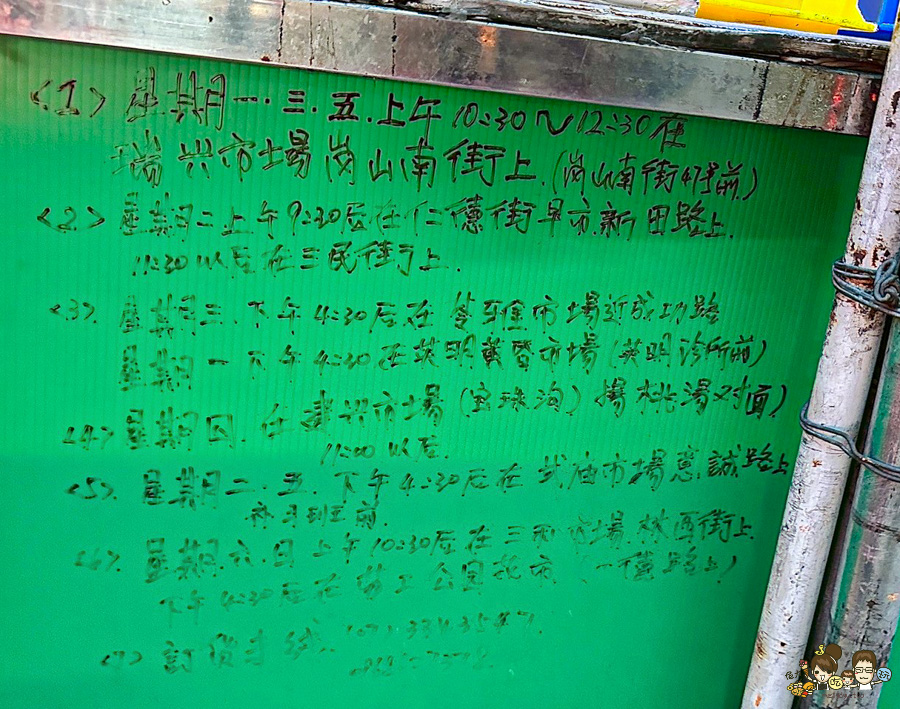 <1> 星期一.三.五.上午10:30~12:30在
瑞興市場崗山南街上.(崗山南街47号前)
<2> 星期二上午9:30后在仁德街早市.新田路上.
11:30以后在三民街上.
<3>. 星期三.下午4:30后在苓雅市場近成功路
星期一下午4:30在英明黃昏市場(英明診所前)
<4> 星期四.在建兴市場(宝珠沟)楊桃湯対面)
11:00以后.
<5>. 星期二.五.下午4:30后在武庙市場意誠路上
补习班前.
<6>. 星期六.日上午10:30后在三民市場.
下午4:30后在劳工公园 (一德路上)
<7> 訂貨